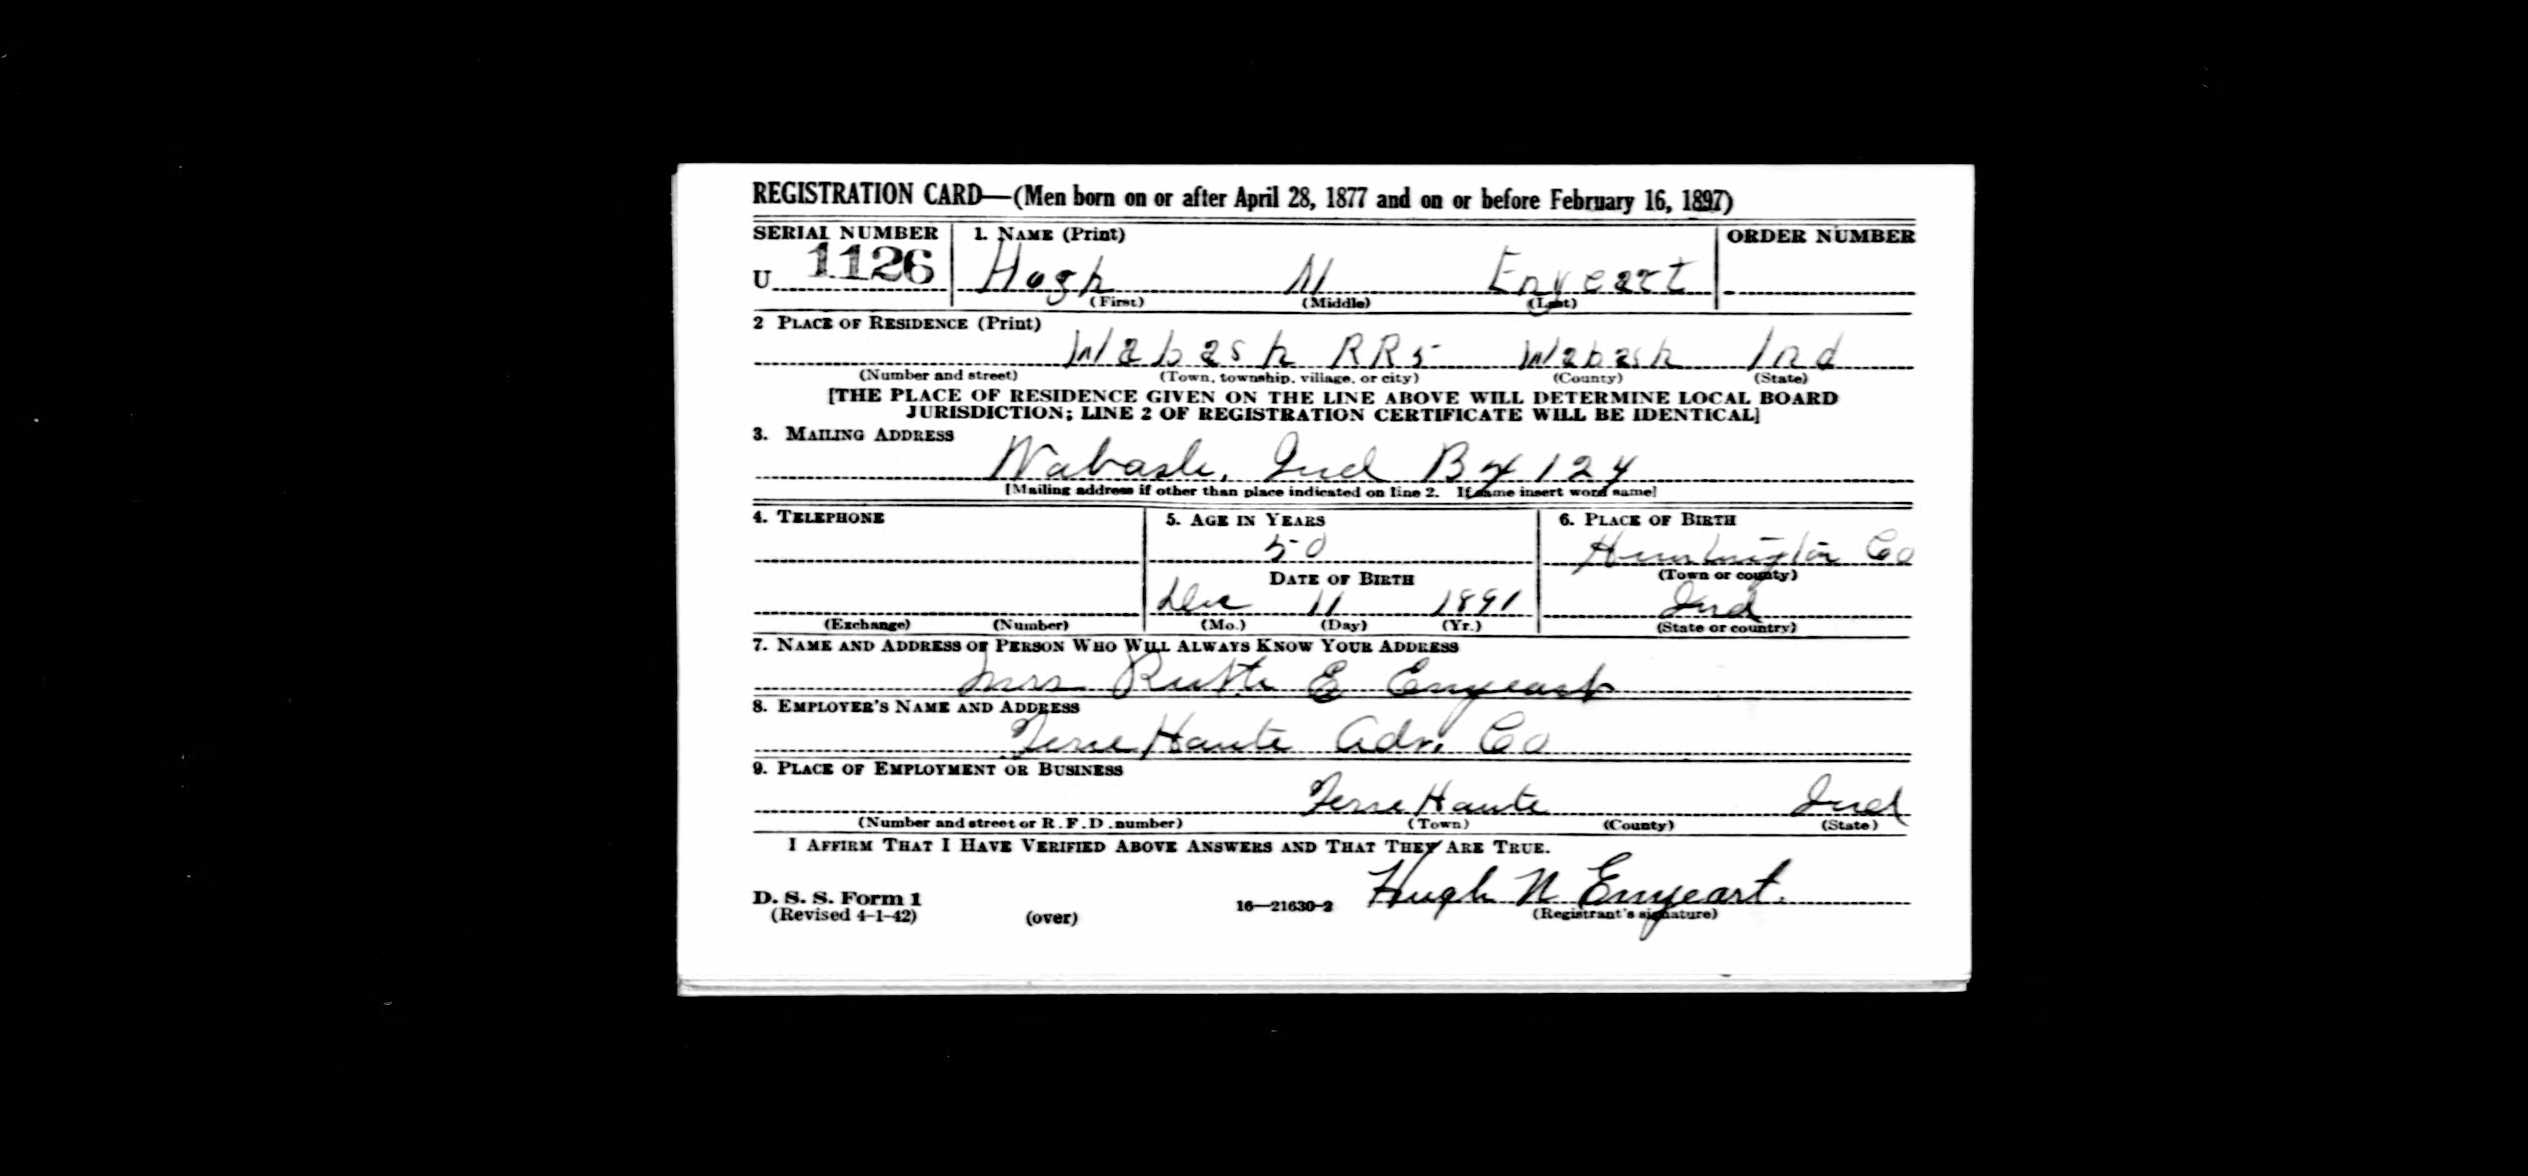 REGISTRATION CARD—(Men born on or after April 28, 1877 and on or before February 16, 1897)
SERIAL NUMBER 1. NAME (Print) ORDER NUMBER
U 1126 Hugh N Enyeart
(First) (Middle) (Last)
2 PLACE OF RESIDENCE (Print)
Wabash RR5 Wabash Ind
(Number and street) (Town, township, village, or city) (County) (State)
[THE PLACE OF RESIDENCE GIVEN ON THE LINE ABOVE WILL DETERMINE LOCAL BOARD
JURISDICTION; LINE 2 OF REGISTRATION CERTIFICATE WILL BE IDENTICAL]
3. MAILING ADDRESS
Wabash, Ind Bx 124
[Mailing address if other than place indicated on line 2. If same insert word same]
4. TELEPHONE 5. AGE IN YEARS 6. PLACE OF BIRTH
50 Huntington Co
DATE OF BIRTH (Town or county)
Dec 11 1891 Ind
(Exchange) (Number) (Mo.) (Day) (Yr.) (State or country)
7. NAME AND ADDRESS OF PERSON WHO WILL ALWAYS KNOW YOUR ADDRESS
Mrs Ruth E Enyeart
8. EMPLOYER'S NAME AND ADDRESS
Terre Haute Adv. Co
9. PLACE OF EMPLOYMENT OR BUSINESS
Terre Haute Ind
(Number and street or R.F.D. number) (Town) (County) (State)
I AFFIRM THAT I HAVE VERIFIED ABOVE ANSWERS AND THAT THEY ARE TRUE.
Hugh N Enyeart.
D. S. S. Form 1 (Registrant's signature)
(Revised 4-1-42) (over) 16—21630-2